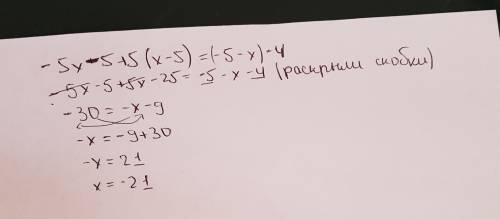 -5x-5+5(x-5)=(-5-x)-4
-5x-5+5x-25=-5-x-4 (раскрыли скобки)
-30=-x-9
-x=-9+30
-x=21
x=-21